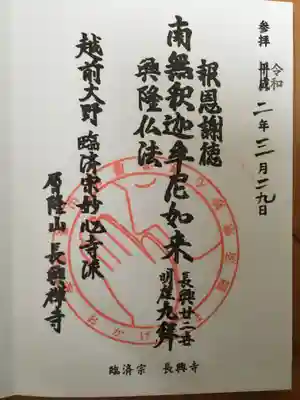 参拝 令和 二年三月二九日
報恩謝徳
南無釈迦牟尼如来
興隆仏法
長興廿三世
明産九拝
越前大野 臨済宗妙心寺派
長興禅寺
臨済宗 長興寺